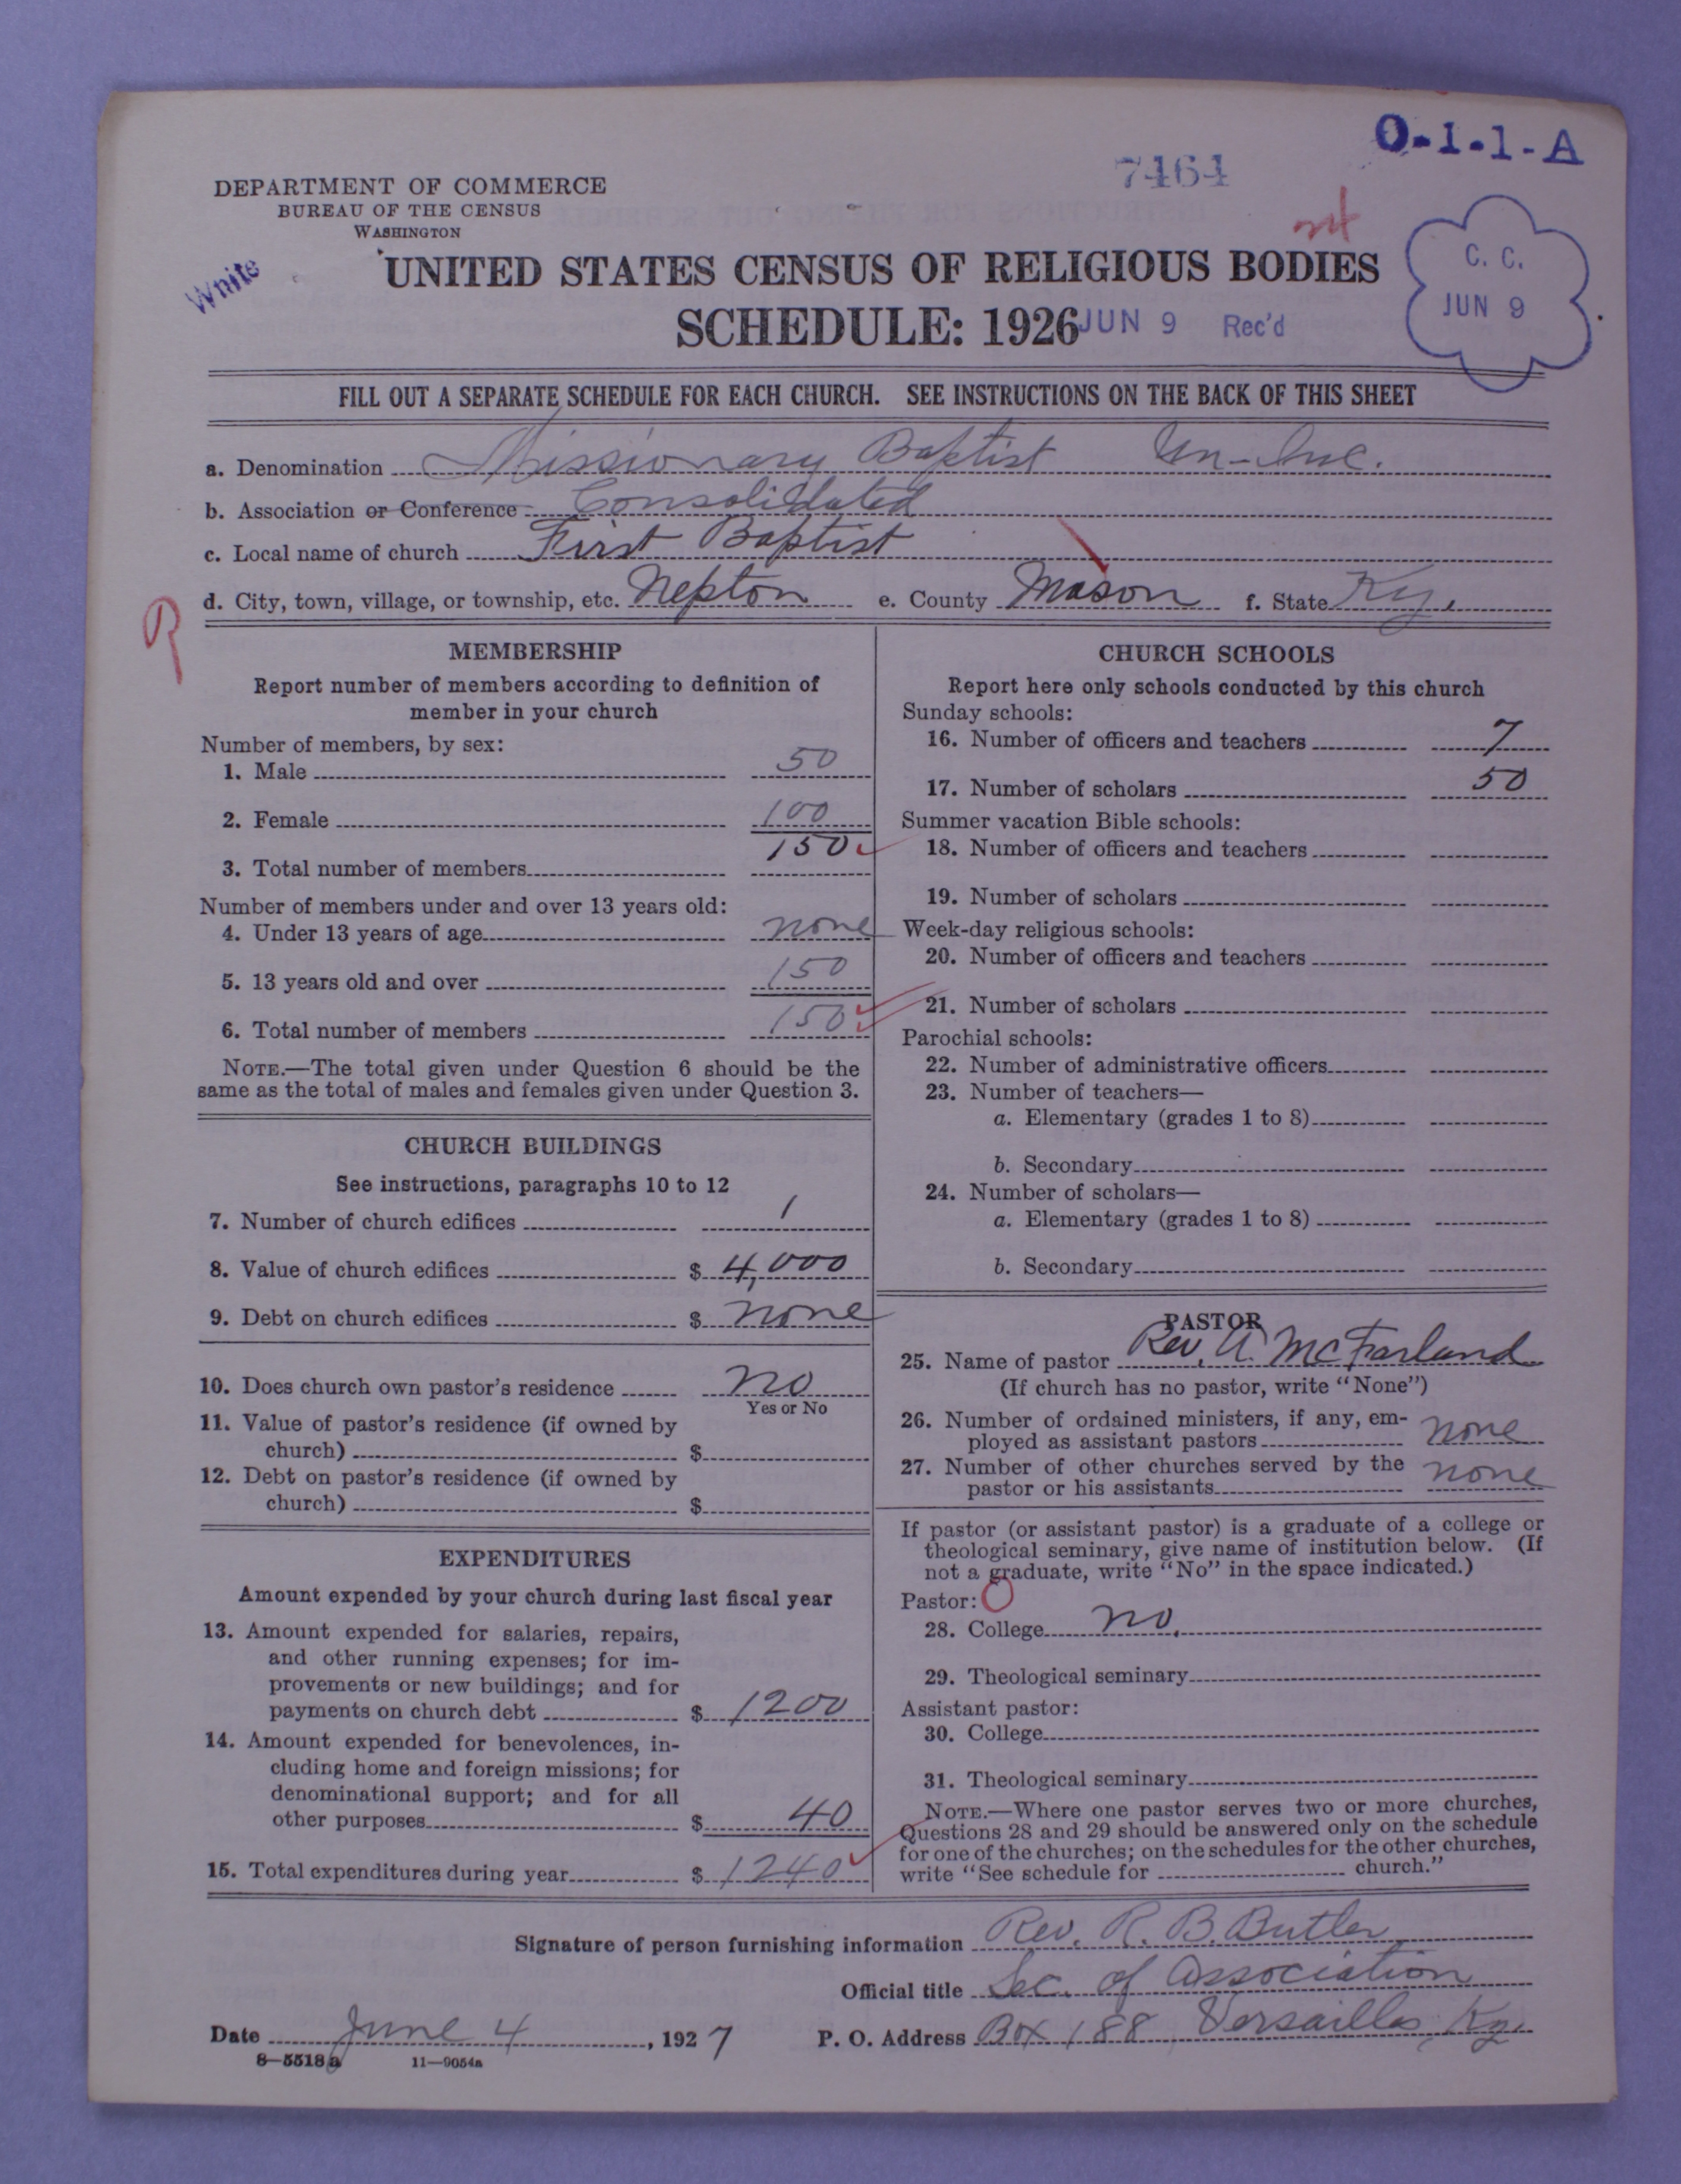 O-1-1-A
7464
DEPARTMENT OF COMMERCE
BUREAU OF THE CENSUS
WASHINGTON
White
UNITED STATES CENSUS OF RELIGIOUS BODIES
SCHEDULE: 1926
JUN 9 Rec'd
C. C.
JUN 9
FILL OUT A SEPARATE SCHEDULE FOR EACH CHURCH. SEE INSTRUCTIONS ON THE BACK OF THIS SHEET
a. Denomination Missionary Baptist Un-Inc.
b. Association or Conference Consolidated
c. Local name of church First Baptist
d. City, town, village, or township, etc. Nepton e. County Mason f. State Ky.
MEMBERSHIP
Report number of members according to definition of
member in your church
Number of members, by sex:
1. Male 50
2. Female 100
3. Total number of members 150
Number of members under and over 13 years old:
4. Under 13 years of age none
5. 13 years old and over 150
6. Total number of members 150
NOTE.—The total given under Question 6 should be the
same as the total of males and females given under Question 3.
CHURCH BUILDINGS
See instructions, paragraphs 10 to 12
7. Number of church edifices 1
8. Value of church edifices $ 4,000
9. Debt on church edifices $ none
10. Does church own pastor's residence no
Yes or No
11. Value of pastor's residence (if owned by
church) $
12. Debt on pastor's residence (if owned by
church) $
EXPENDITURES
Amount expended by your church during last fiscal year
13. Amount expended for salaries, repairs,
and other running expenses; for im-
provements or new buildings; and for
payments on church debt $ 1200
14. Amount expended for benevolences, in-
cluding home and foreign missions; for
denominational support; and for all
other purposes $ 40
15. Total expenditures during year $ 1240
CHURCH SCHOOLS
Report here only schools conducted by this church
Sunday schools:
16. Number of officers and teachers 7
17. Number of scholars 50
Summer vacation Bible schools:
18. Number of officers and teachers
19. Number of scholars
Week-day religious schools:
20. Number of officers and teachers
21. Number of scholars
Parochial schools:
22. Number of administrative officers
23. Number of teachers—
a. Elementary (grades 1 to 8)
b. Secondary
24. Number of scholars—
a. Elementary (grades 1 to 8)
b. Secondary
PASTOR
25. Name of pastor Rev. A. McFarland
(If church has no pastor, write "None")
26. Number of ordained ministers, if any, em-
ployed as assistant pastors none
27. Number of other churches served by the
pastor or his assistants none
If pastor (or assistant pastor) is a graduate of a college or
theological seminary, give name of institution below. (If
not a graduate, write "No" in the space indicated.)
Pastor:
28. College no.
29. Theological seminary
Assistant pastor:
30. College
31. Theological seminary
NOTE.—Where one pastor serves two or more churches,
Questions 28 and 29 should be answered only on the schedule
for one of the churches; on the schedules for the other churches,
write "See schedule for church."
Signature of person furnishing information Rev. R. B. Butler
Official title Sec. of Association
Date June 4, 1927 P. O. Address Box 188 Versailles, Ky.
8—5518a 11—9054a